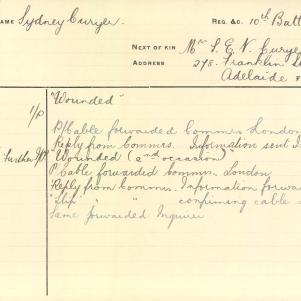 NAME Sydney Curyer. REG. &C. 10th Batt
NEXT OF KIN Mr S. E. N. Curye
ADDRESS 278. Franklin St
Adelaide F
"Wounded"
P/Cable forwarded Commrs London
Reply from Commrs. Information sent I
Further Wounded (2nd occasion)
P Cable forwarded Commrs. London
Reply from Commrs. Information forwar
"Slip" " " confirming cable
Same forwarded Inquirer